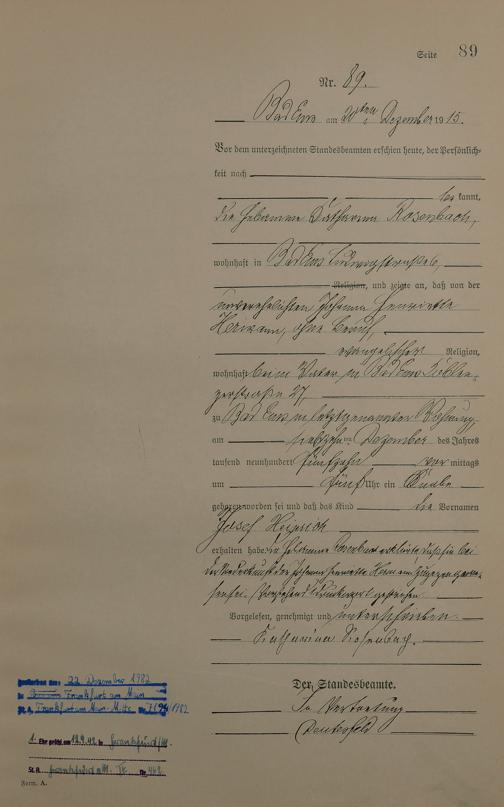 Seite 89
Nr. 89.
Bad Ems am 20ten Dezember 1915.
Vor dem unterzeichneten Standesbeamten erschien heute, der Persönlich-
keit nach
bekannt,
die Hebamme Katharina Rosenbach,
wohnhaft in Bad Ems
Religion, und zeigte an, daß von der
unverehelichten Johanna Henriette
Hermann, ohne Beruf,
evangelischer Religion,
wohnhaft beim Vater in Bad Ems Koblen-
zerstraße 27
zu Bad Ems in letztgenannter Wohnung
am Dezember des Jahres
tausend neunhundert fünfzehn vor mittags
um fünf Uhr ein Knabe
geboren worden sei und daß das Kind die Vornamen
Josef Heinrich
erhalten habe. Die Hebamme Rosenbach erklärte, daß sie bei
der Niederkunft der Johanna Henriette Hermann zugegen gewe-
sen sei.
Vorgelesen, genehmigt und unterschrieben
Katharina Rosenbach.
Der Standesbeamte.
In Vertretung
gestorben am: 22. Dezember 1982
in Frankfurt am Main
St.A. Frankfurt am Main-Mitte Nr. /1982
1. Ehe in Frankfurt/M.
St.A. Frankfurt a/M. Nr.
Form. A.